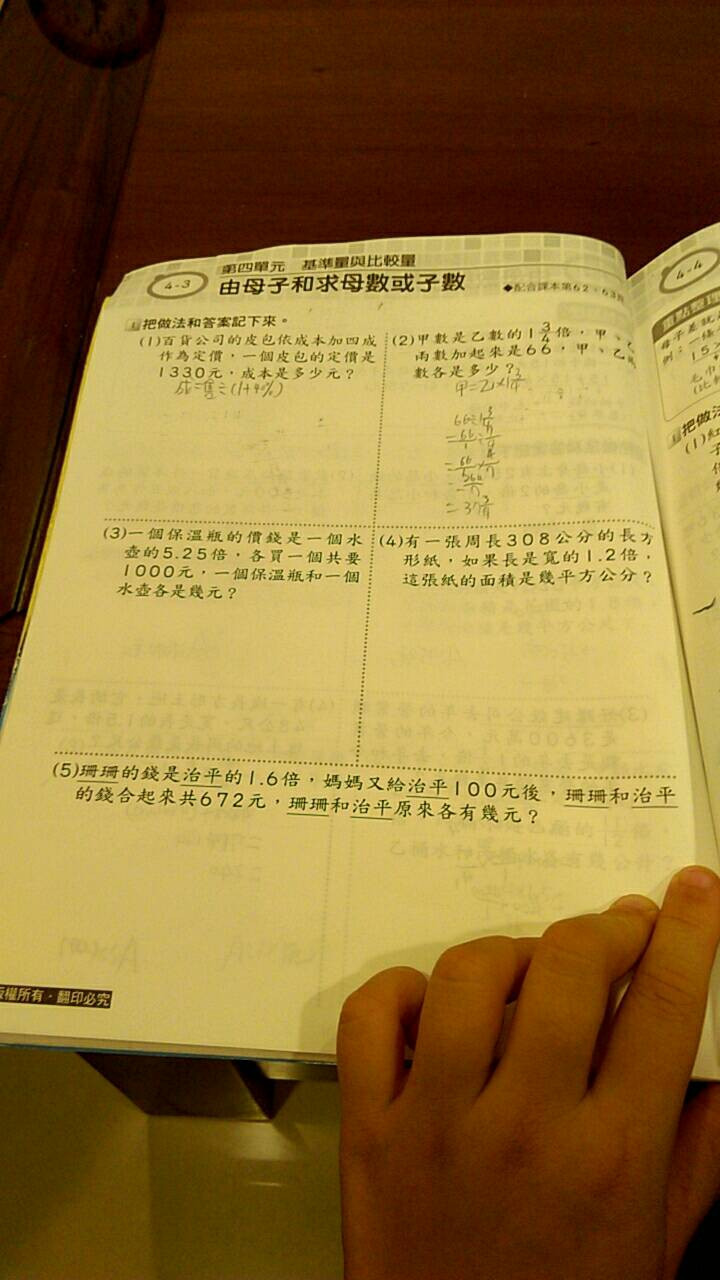 4-3
第四單元 基準量與比較量
由母子和求母數或子數
◆配合課本第62、63頁
把做法和答案記下來。
(1)百貨公司的皮包依成本加四成
作為定價，一個皮包的定價是
1330元，成本是多少元？
成=售÷(1+4%)
(2)甲數是乙數的1 3/4倍，甲、乙
兩數加起來是66，甲、乙
數各是多少？
甲=乙×1 3/4
(3)一個保溫瓶的價錢是一個水
壺的5.25倍，各買一個共要
1000元，一個保溫瓶和一個
水壺各是幾元？
(4)有一張周長308公分的長方
形紙，如果長是寬的1.2倍，
這張紙的面積是幾平方公分？
(5)珊珊的錢是治平的1.6倍，媽媽又給治平100元後，珊珊和治平
的錢合起來共672元，珊珊和治平原來各有幾元？
版權所有‧翻印必究
4-4
把做法
(1)紅